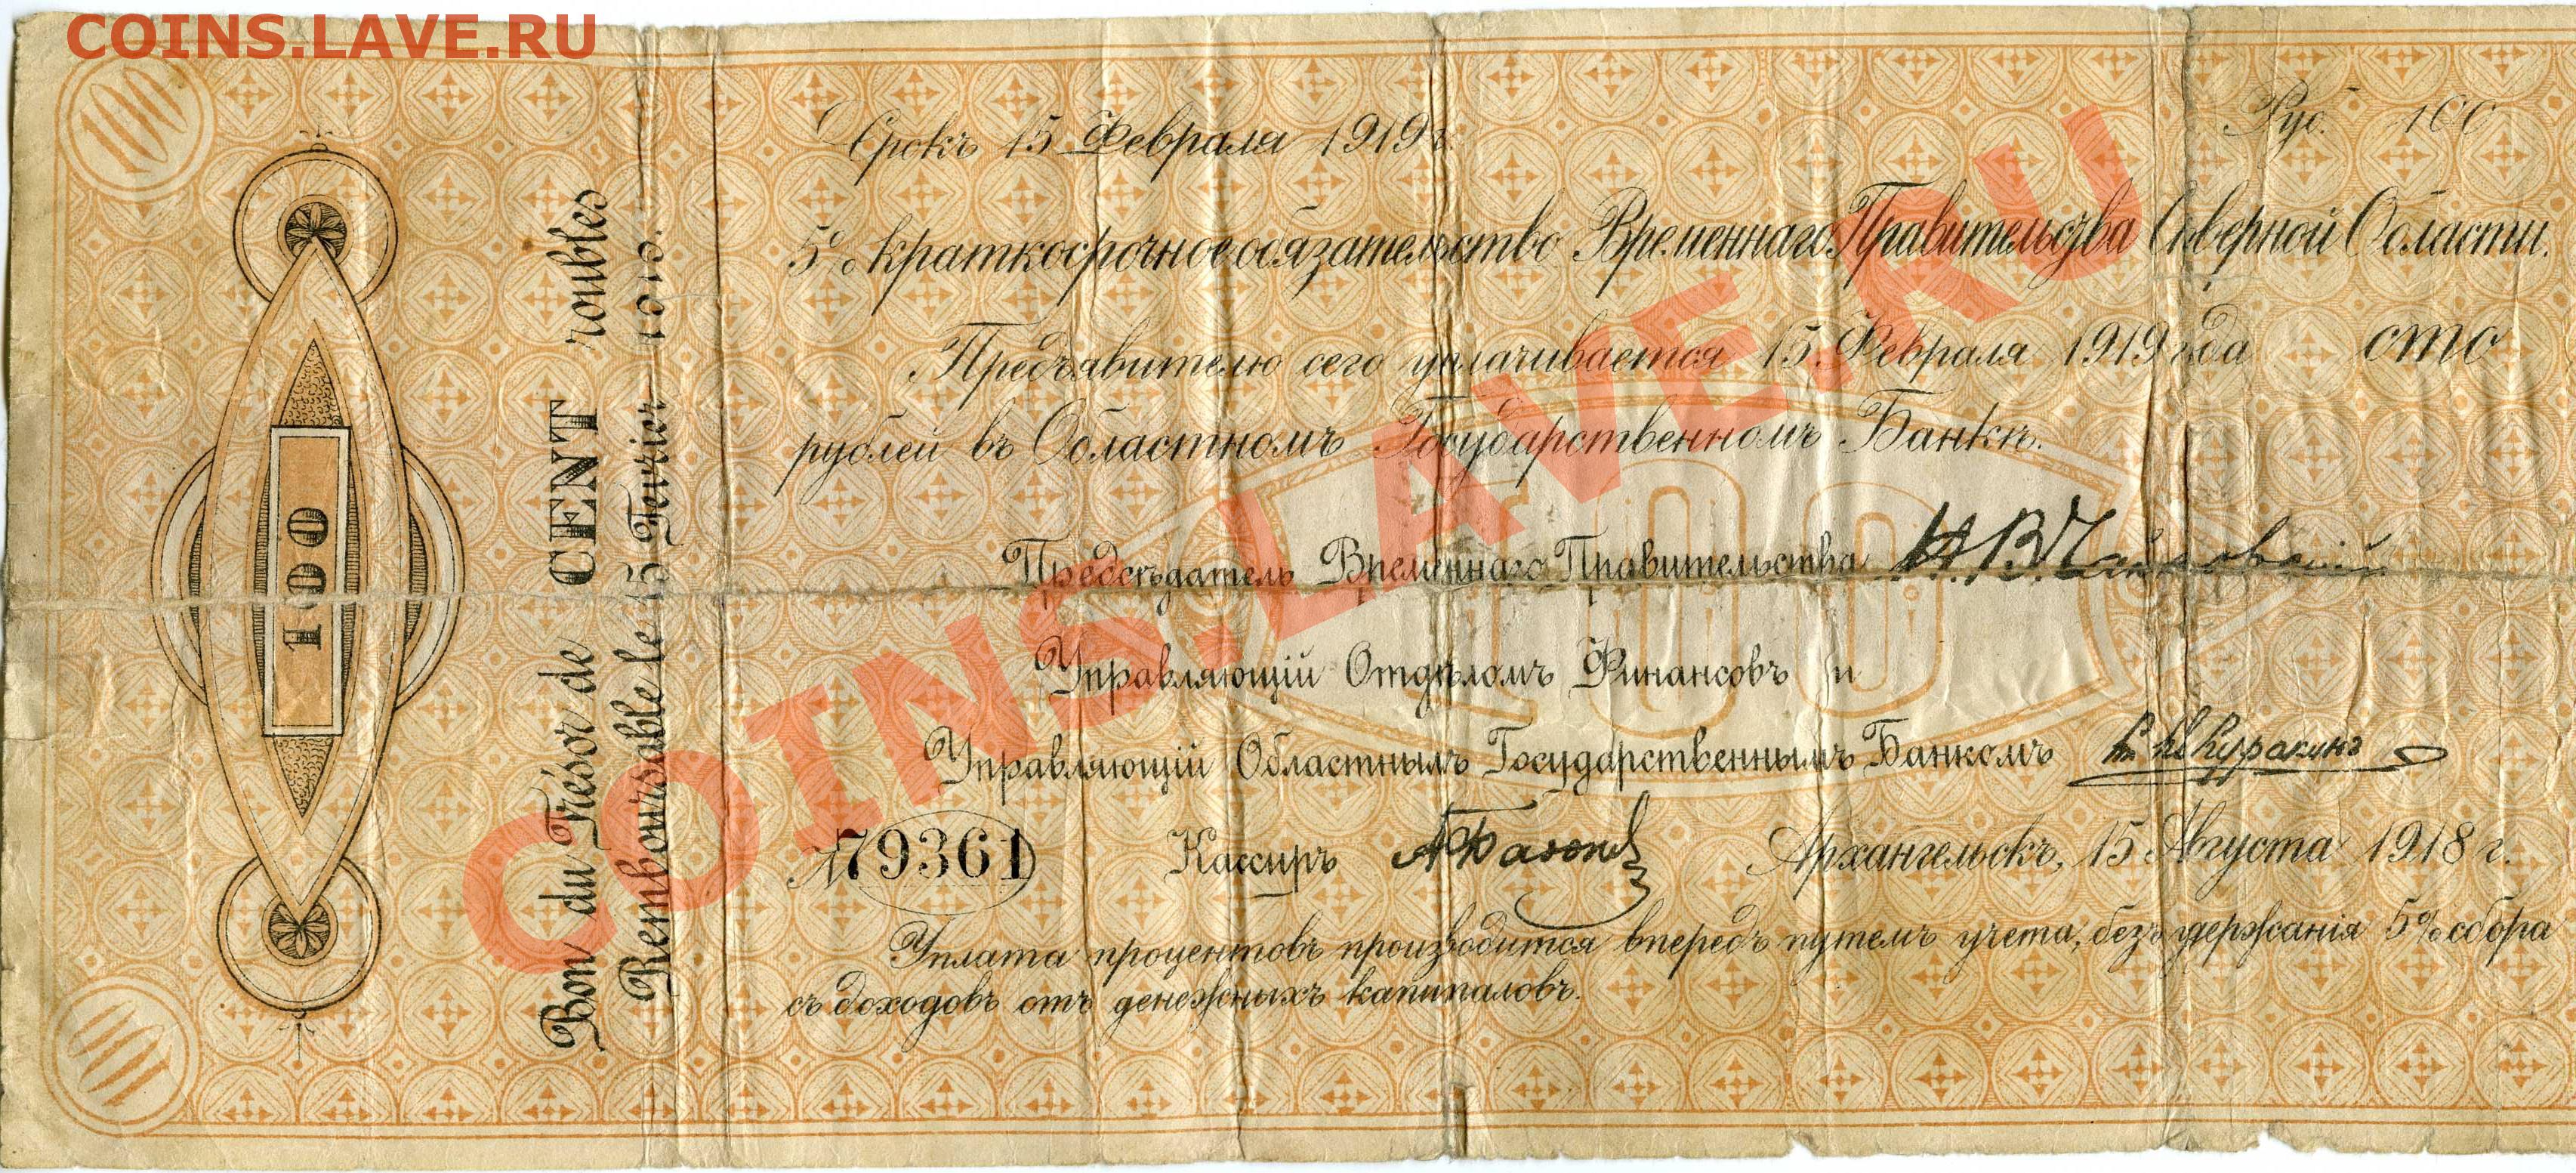 COINS.LAVE.RU
100
Срокъ 15 Февраля 1919 г.
Руб. 100
5% краткосрочное обязательство Временнаго Правительства Сѣверной Области.
Предъявителю сего уплачивается 15 Февраля 1919 года сто
рублей въ Областномъ Государственномъ Банкѣ.
Предсѣдатель Временнаго Правительства Н.В. Чайковскій
Управляющій Отдѣломъ Финансовъ и
Управляющій Областнымъ Государственнымъ Банкомъ Куракинъ
№ 79361 Кассиръ Архангельскъ, 15 Августа 1918 г.
Уплата процентовъ производится впередъ путемъ учета, безъ удержанія 5% сбора
съ доходовъ отъ денежныхъ капиталовъ.
Bon du Trésor de CENT roubles
Remboursable le 15 Fevrier 1919.
100
100
100
COINS.LAVE.RU